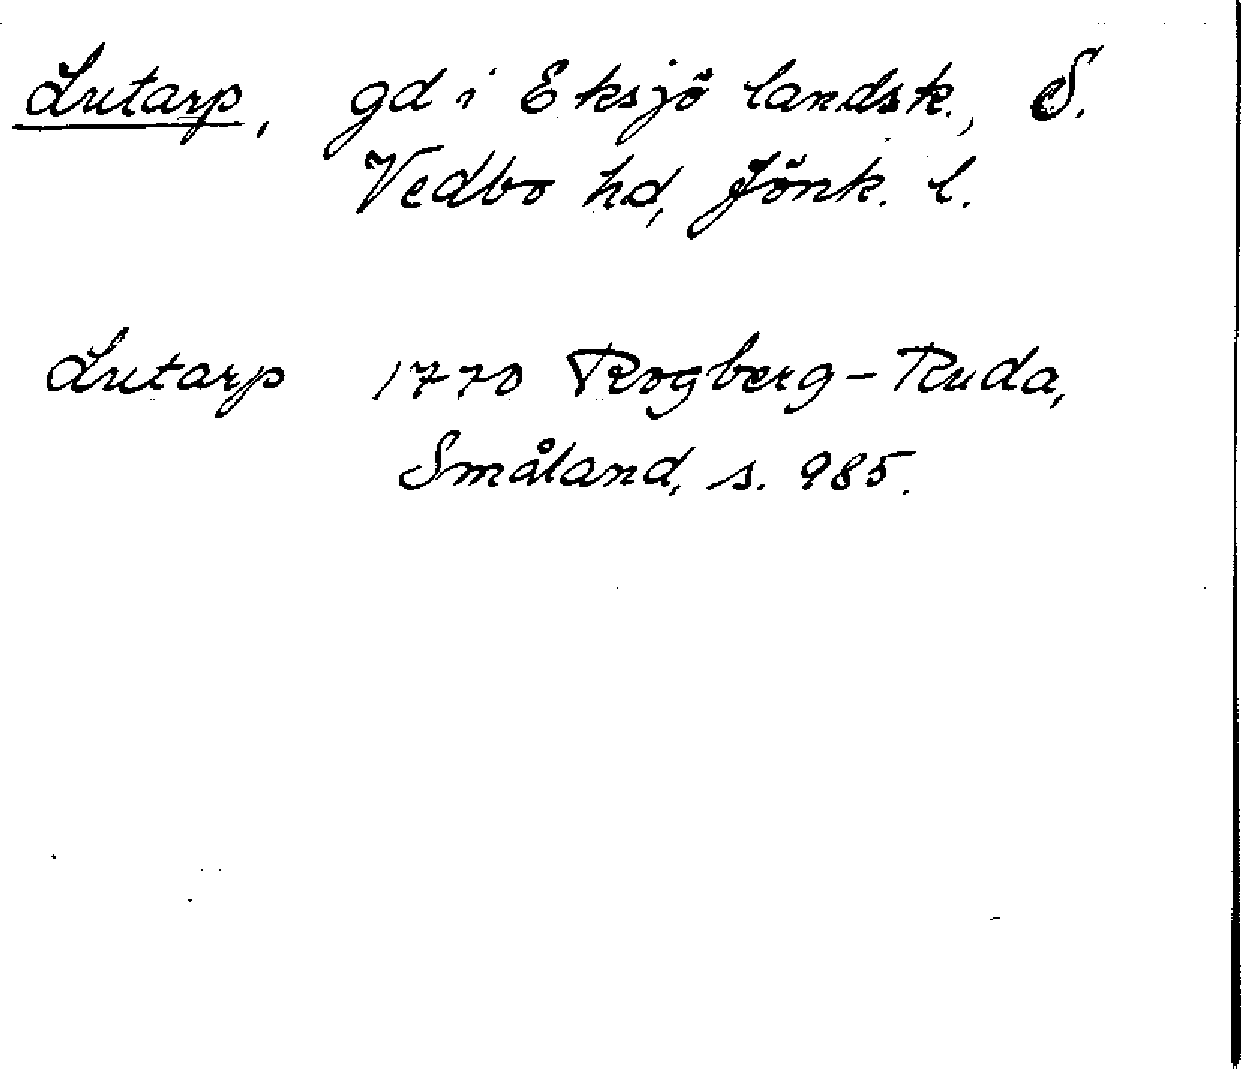 Lutarp, gd i Eksjö landsk., S.
Vedbo hd, Jönk. l.
Lutarp 1770 Rogberg-Ruda,
Småland, s. 985.